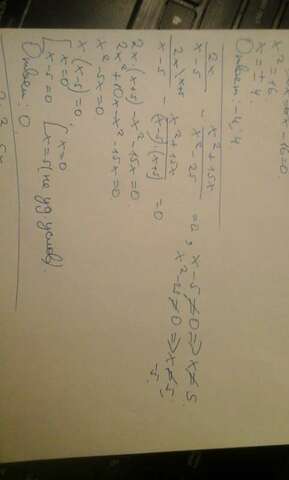 x² = 16
x = ± 4
Ответ: -4; 4
2x / (x-5) - (x² + 15x) / (x² - 25) = 0, x - 5 ≠ 0 => x ≠ 5
x² - 25 ≠ 0 => x ≠ 5; -5
2x\x+5 / (x-5) - (x² + 15x) / ((x-5)·(x+5)) = 0
2x·(x+5) - x² - 15x = 0
2x² + 10x - x² - 15x = 0
x² - 5x = 0
x(x-5) = 0
[x = 0 [x = 0
[x - 5 = 0 [x = 5 (не уд услов).
Ответ: 0